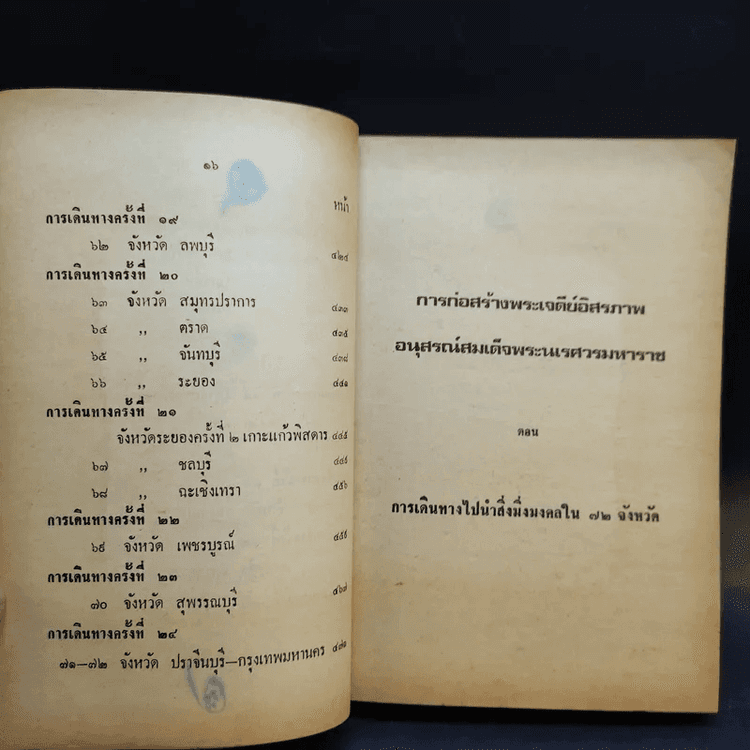 ๑๖
หน้า
การเดินทางครั้งที่ ๑๙
๖๒ จังหวัด ลพบุรี ๔๒๔
การเดินทางครั้งที่ ๒๐
๖๓ จังหวัด สมุทรปราการ ๔๓๓
๖๔ ,, ตราด ๔๓๕
๖๕ ,, จันทบุรี ๔๓๘
๖๖ ,, ระยอง ๔๔๑
การเดินทางครั้งที่ ๒๑
จังหวัดระยองครั้งที่ ๒ เกาะแก้วพิสดาร ๔๔๕
๖๗ ,, ชลบุรี ๔๔๕
๖๘ ,, ฉะเชิงเทรา ๔๕๖
การเดินทางครั้งที่ ๒๒
๖๙ จังหวัด เพชรบูรณ์ ๔๕๙
การเดินทางครั้งที่ ๒๓
๗๐ จังหวัด สุพรรณบุรี ๔๖๗
การเดินทางครั้งที่ ๒๔
๗๑—๗๒ จังหวัด ปราจีนบุรี—กรุงเทพมหานคร ๔๗๑
การก่อสร้างพระเจดีย์อิสรภาพ
อนุสรณ์สมเด็จพระนเรศวรมหาราช
ตอน
การเดินทางไปนำสิ่งมิ่งมงคลใน ๗๒ จังหวัด